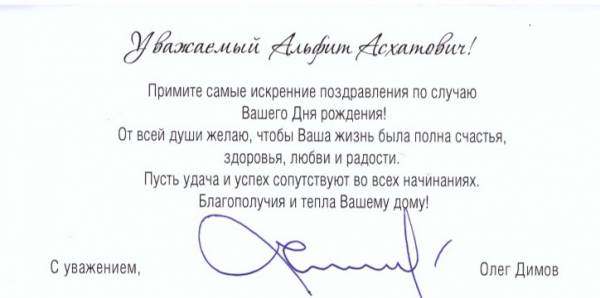 Уважаемый Альфит Асхатович!
Примите самые искренние поздравления по случаю
Вашего Дня рождения!
От всей души желаю, чтобы Ваша жизнь была полна счастья,
здоровья, любви и радости.
Пусть удача и успех сопутствуют во всех начинаниях.
Благополучия и тепла Вашему дому!
С уважением, Олег Димов